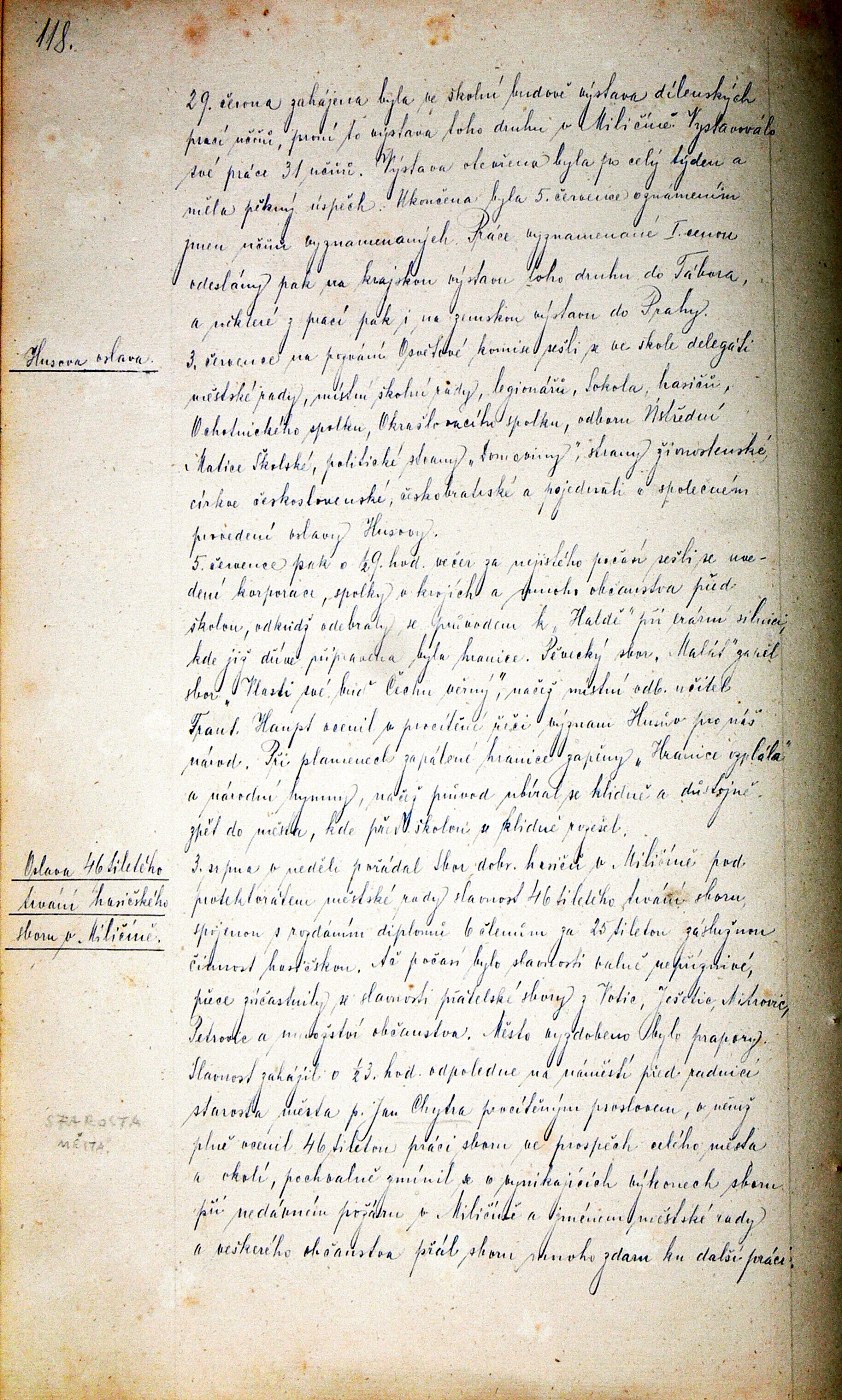 118.
29. června zahájena byla ve školní budově výstava dílenských
prací učňů, první to výstava toho druhu v Miličíně. Vystavovalo
své práce 31 učňů. Výstava otevřena byla po celý týden a
měla pěkný úspěch. Ukončena byla 5. července oznámením
jmen učňů vyznamenaných. Práce vyznamenané I. cenou
odeslány pak na krajskou výstavu toho druhu do Tábora,
a některé z prací pak i na zemskou výstavu do Prahy.
Husova oslava.
3. července na pozvání Osvětové komise sešli se ve škole delegáti
městské rady, místní školní rady, legionářů, Sokola, hasičů,
Ochotnického spolku, Okrašlovacího spolku, odboru Ústřední
Matice Školské, politické strany „Domoviny", strany živnostenské,
církve československé, českobratrské a pojednáno o společném
provedení oslavy Husovy.
5. července pak o ½9. hod. večer za nejistého počasí sešli se uve-
dené korporace, spolky v krojích a mnoho občanstva před
školou, odkudž odebraly se průvodem k „Haldě" při erární silnici,
kde již dříve připravena byla hranice. Pěvecký sbor „Malát" zapěl
sbor „Vlasti své buď Čechu věrný", načež místní odb. učitel
Frant. Haupt ocenil v procítěné řeči význam Husův pro náš
národ. Při plamenech zapálené hranice zapěny „Hranice vzplála"
a národní hymny, načež průvod ubíral se klidně a důstojně
zpět do města, kde před školou se klidně rozešel.
Oslava 46tiletého
trvání hasičského
sboru v Miličíně.
3. srpna v neděli pořádal Sbor dobr. hasičů v Miličíně pod
protektorátem městské rady slavnost 46tiletého trvání sboru,
spojenou s rozdáním diplomů 6 členům za 25tiletou záslužnou
činnost hasičskou. Ač počasí bylo slavnosti valně nepříznivé,
přece zúčastnily se slavnosti přátelské sbory z Votic, Ješetic, Mitrovic,
Petrovic a množství občanstva. Město vyzdobeno bylo prapory.
Slavnost zahájil o ½3. hod. odpoledne na náměstí před radnicí
starosta města p. Jan Chytra procítěným proslovem, v němž
STAROSTA
MĚSTA.
plně ocenil 46tiletou práci sboru ve prospěch celého města
a okolí, pochvalně zmínil se o vynikajících výkonech sboru
při nedávném požáru v Miličíně a jménem městské rady
a veškerého občanstva přál sboru mnoho zdaru ku další práci.